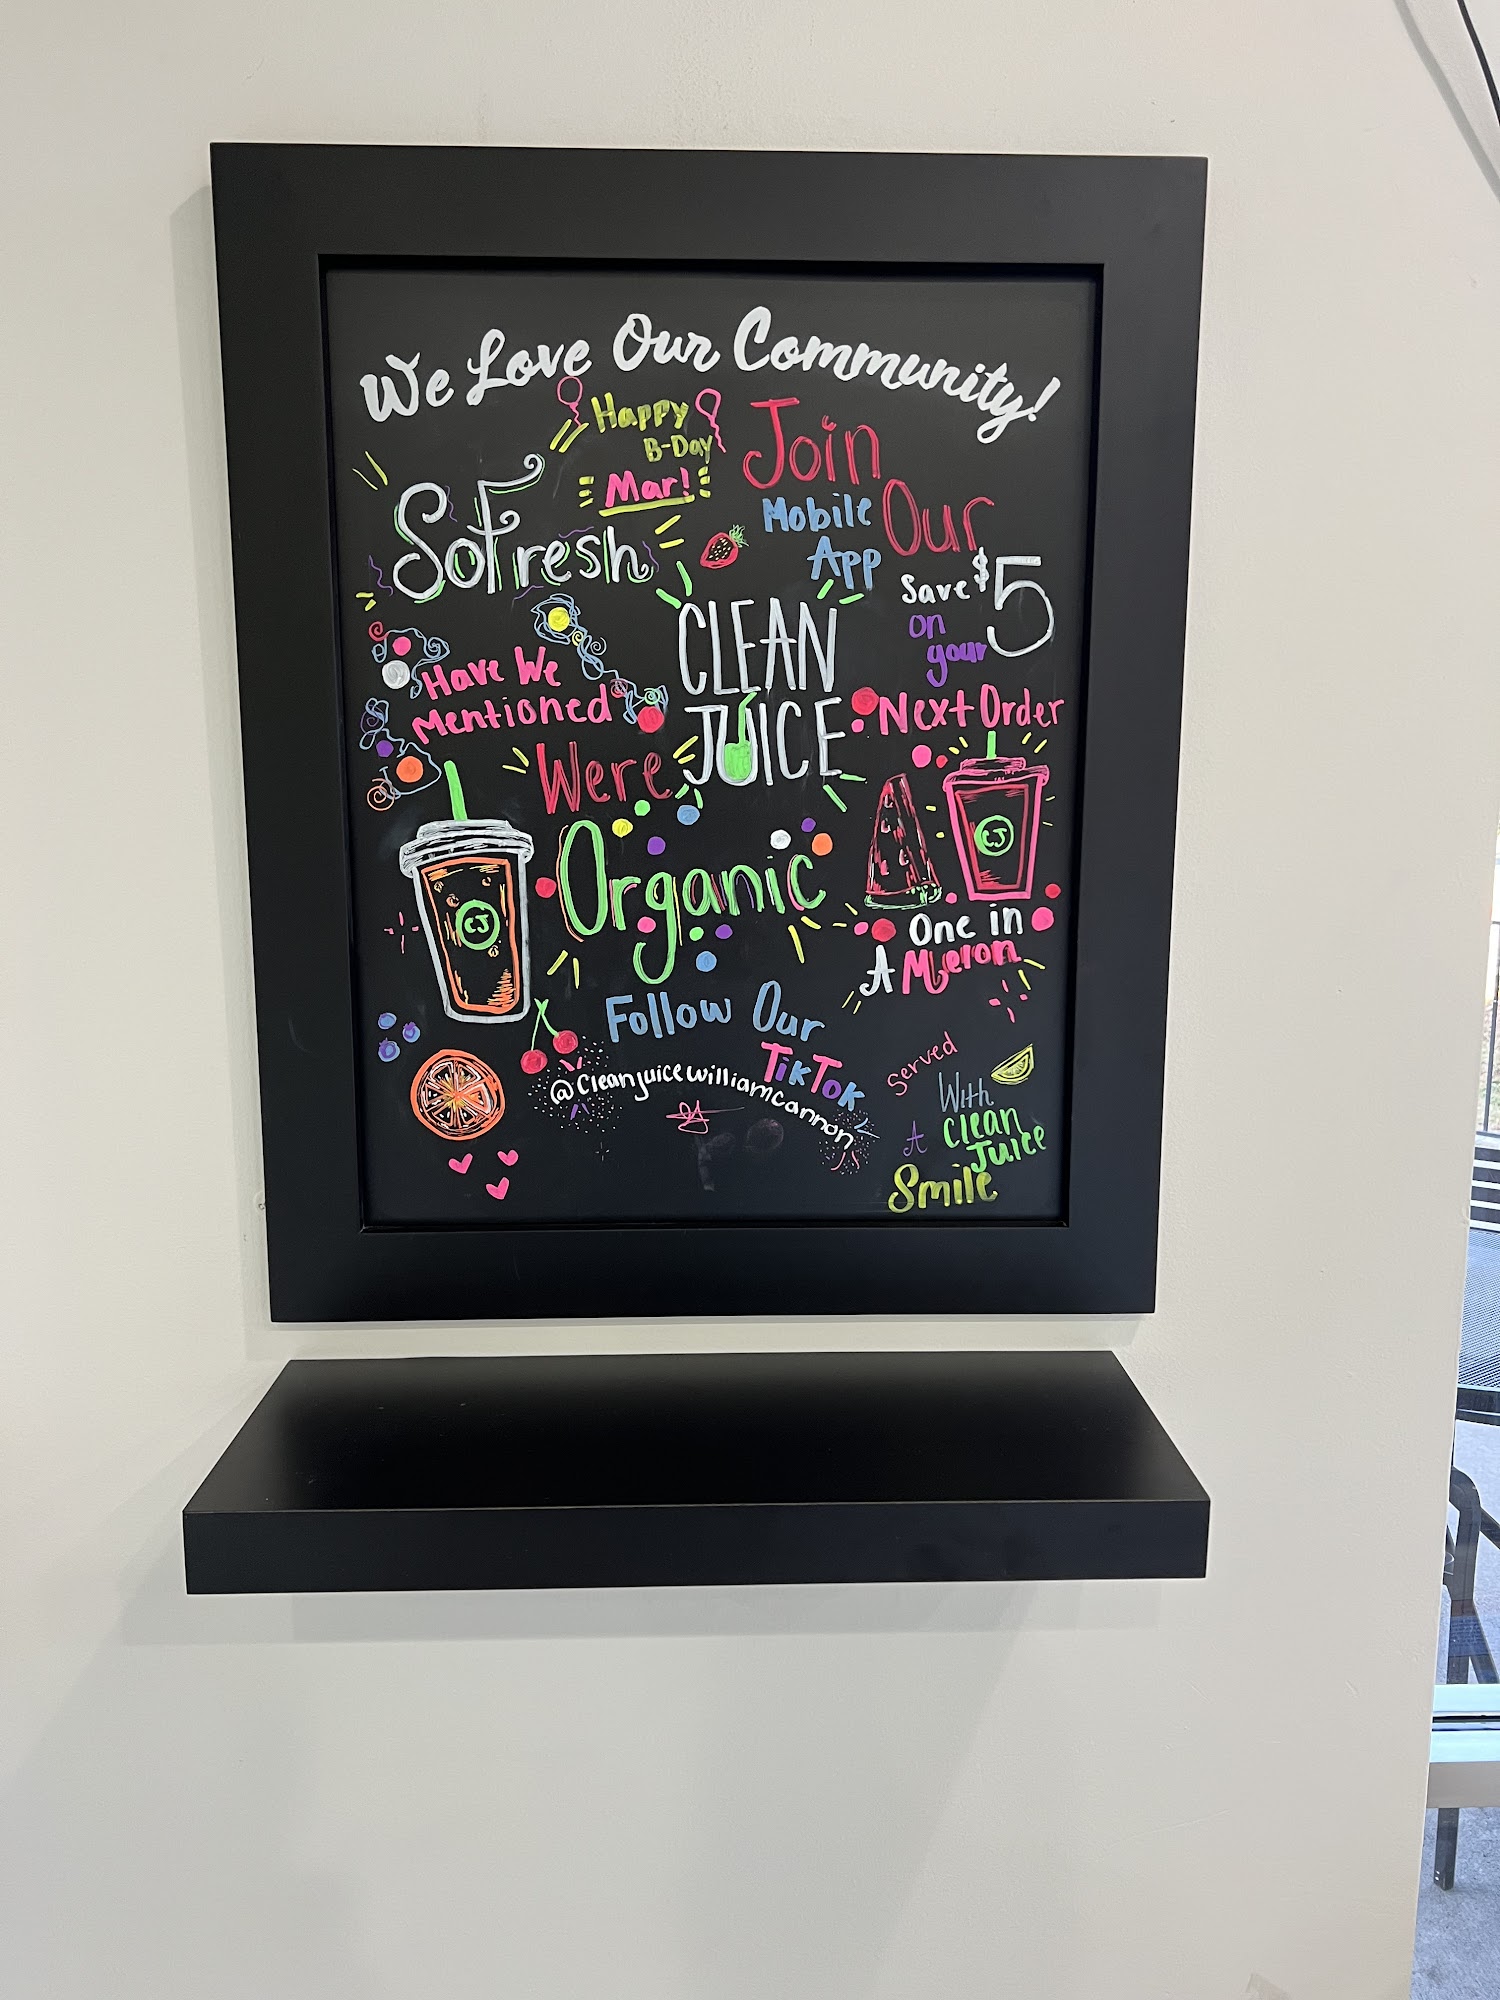 We Love Our Community!
Happy
B-Day
Mar!
So Fresh
Join
Our
Mobile
App
Save $5
on
your
Next Order
CLEAN
JUICE
Have We
Mentioned
Were
Organic
CJ
CJ
One in
A Meron
Follow Our
TikTok
@cleanjuicewilliamcannon
Served
With
A Clean
Juice
Smile